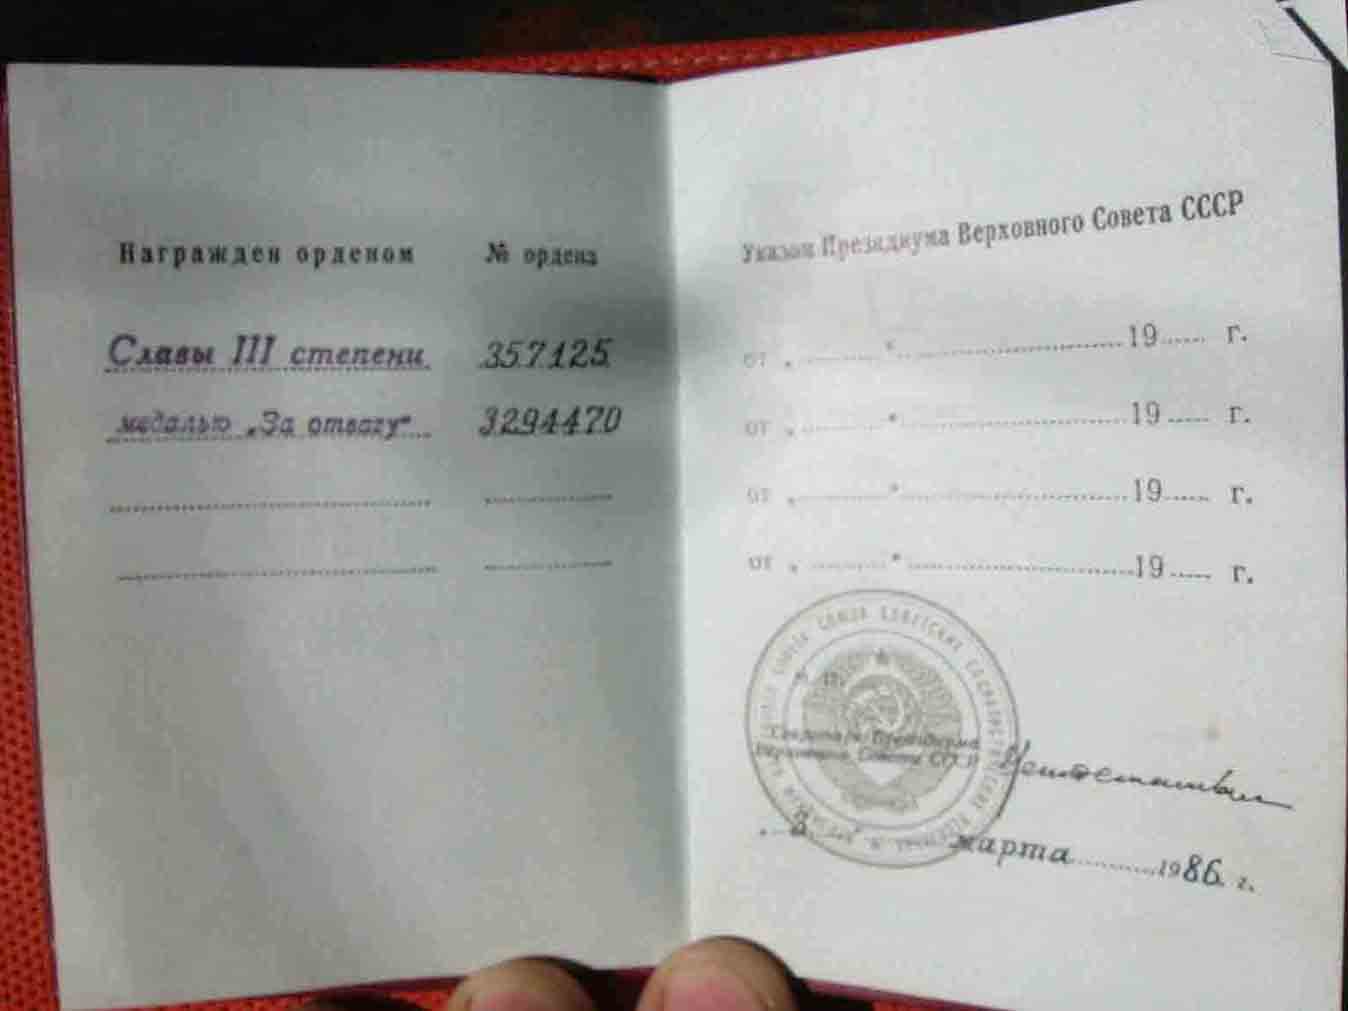 Награжден орденом № ордена
Славы III степени 357125
медалью „За отвагу“ 3294470
Указом Президиума Верховного Совета СССР
от „ “ 19 г.
от „ “ 19 г.
от „ “ 19 г.
от „ “ 19 г.
Секретарь Президиума
Верховного Совета СССР
марта 1986 г.